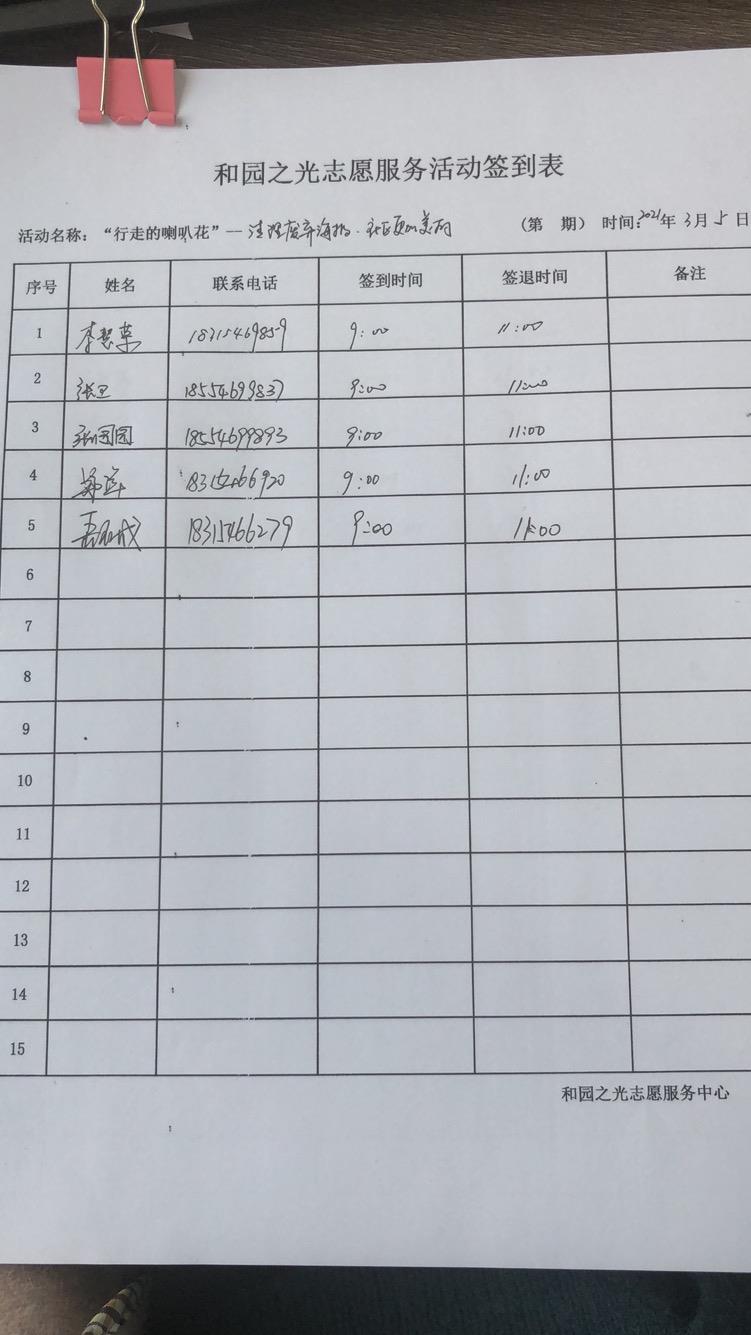 和园之光志愿服务活动签到表
活动名称：“行走的喇叭花”—清理废弃海报·社区更加美丽 （第 期） 时间：2021年3月5日
序号 姓名 联系电话 签到时间 签退时间 备注
1 李慧革 18315469859 9:00 11:00
2 张卫 18554699837 9:00 11:00
3 张园园 18554699893 9:00 11:00
4 9:00 11:00
5 18315466279 9:00 11:00
6
7
8
9
10
11
12
13
14
15
和园之光志愿服务中心